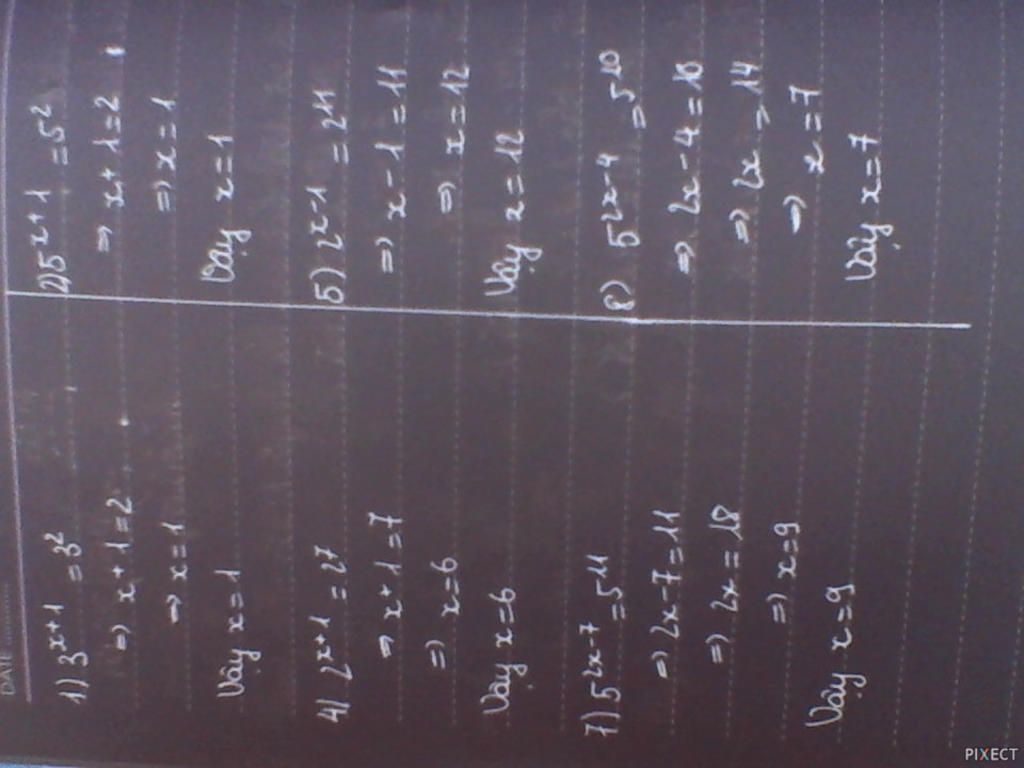 DATE
1) 3^{x+1} = 3^2
=> x+1=2
=> x=1
Vậy x=1
4) 2^{x+1} = 2^7
=> x+1=7
=> x=6
Vậy x=6
7) 5^{2x-7} = 5^{11}
=> 2x-7=11
=> 2x=18
=> x=9
Vậy x=9
2) 5^{x+1} = 5^2
=> x+1=2
=> x=1
Vậy x=1
5) 2^{x-1} = 2^{11}
=> x-1=11
=> x=12
Vậy x=12
8) 5^{2x-4} = 5^{10}
=> 2x-4=10
=> 2x=14
=> x=7
Vậy x=7
PIXECT